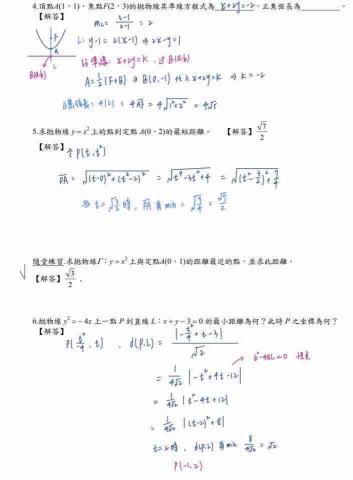 4.頂點A(1,1),焦點F(2,3)的拋物線其準線方程式為 x+2y=-2,正焦弦長為________。
【解答】 m_L = \frac{3-1}{2-1} = 2
L: y-1 = 2(x-1) ⇒ 2x-y=1
設準線: x+2y=k,過B(0,-1)
A=\frac{1}{2}(F+B) ⇒ B(0,-1) 代入 x+2y=k ⇒ k=-2
正焦弦長=4|c| = 4\overline{AF} = 4\sqrt{1^2+2^2} = 4\sqrt{5}
5.求拋物線 y=x² 上的點到定點 A(0,2)的最短距離。 【解答】\frac{\sqrt{7}}{2}
【解答】令 P(t,t²)
\overline{PA} = \sqrt{(t-0)^2+(t^2-2)^2} = \sqrt{t^4-3t^2+4} = \sqrt{(t^2-\frac{3}{2})^2+\frac{7}{4}}
當 t=\sqrt{\frac{3}{2}} 時, \overline{PA} 有 min = \sqrt{\frac{7}{4}} = \frac{\sqrt{7}}{2}
隨堂練習.求拋物線Γ:y=x²上與定點A(0,1)的距離最近的點,並求此距離。
【解答】\frac{\sqrt{3}}{2}.
6.拋物線 y²=-4x 上一點 P 到直線 L:x+y-3=0 的最小距離為何?此時 P 之坐標為何?
【解答】 P(-\frac{t^2}{4}, t), d(P,L) = \frac{|-\frac{t^2}{4}+t-3|}{\sqrt{2}}
= \frac{1}{4\sqrt{2}} |-t²+4t-12| b²-4ac<0
= \frac{1}{4\sqrt{2}} |t²-4t+12|
= \frac{1}{4\sqrt{2}} |(t-2)²+8|
t=2 時, d(P,L) 有 min \frac{8}{4\sqrt{2}} = \sqrt{2}
P(-1,2)